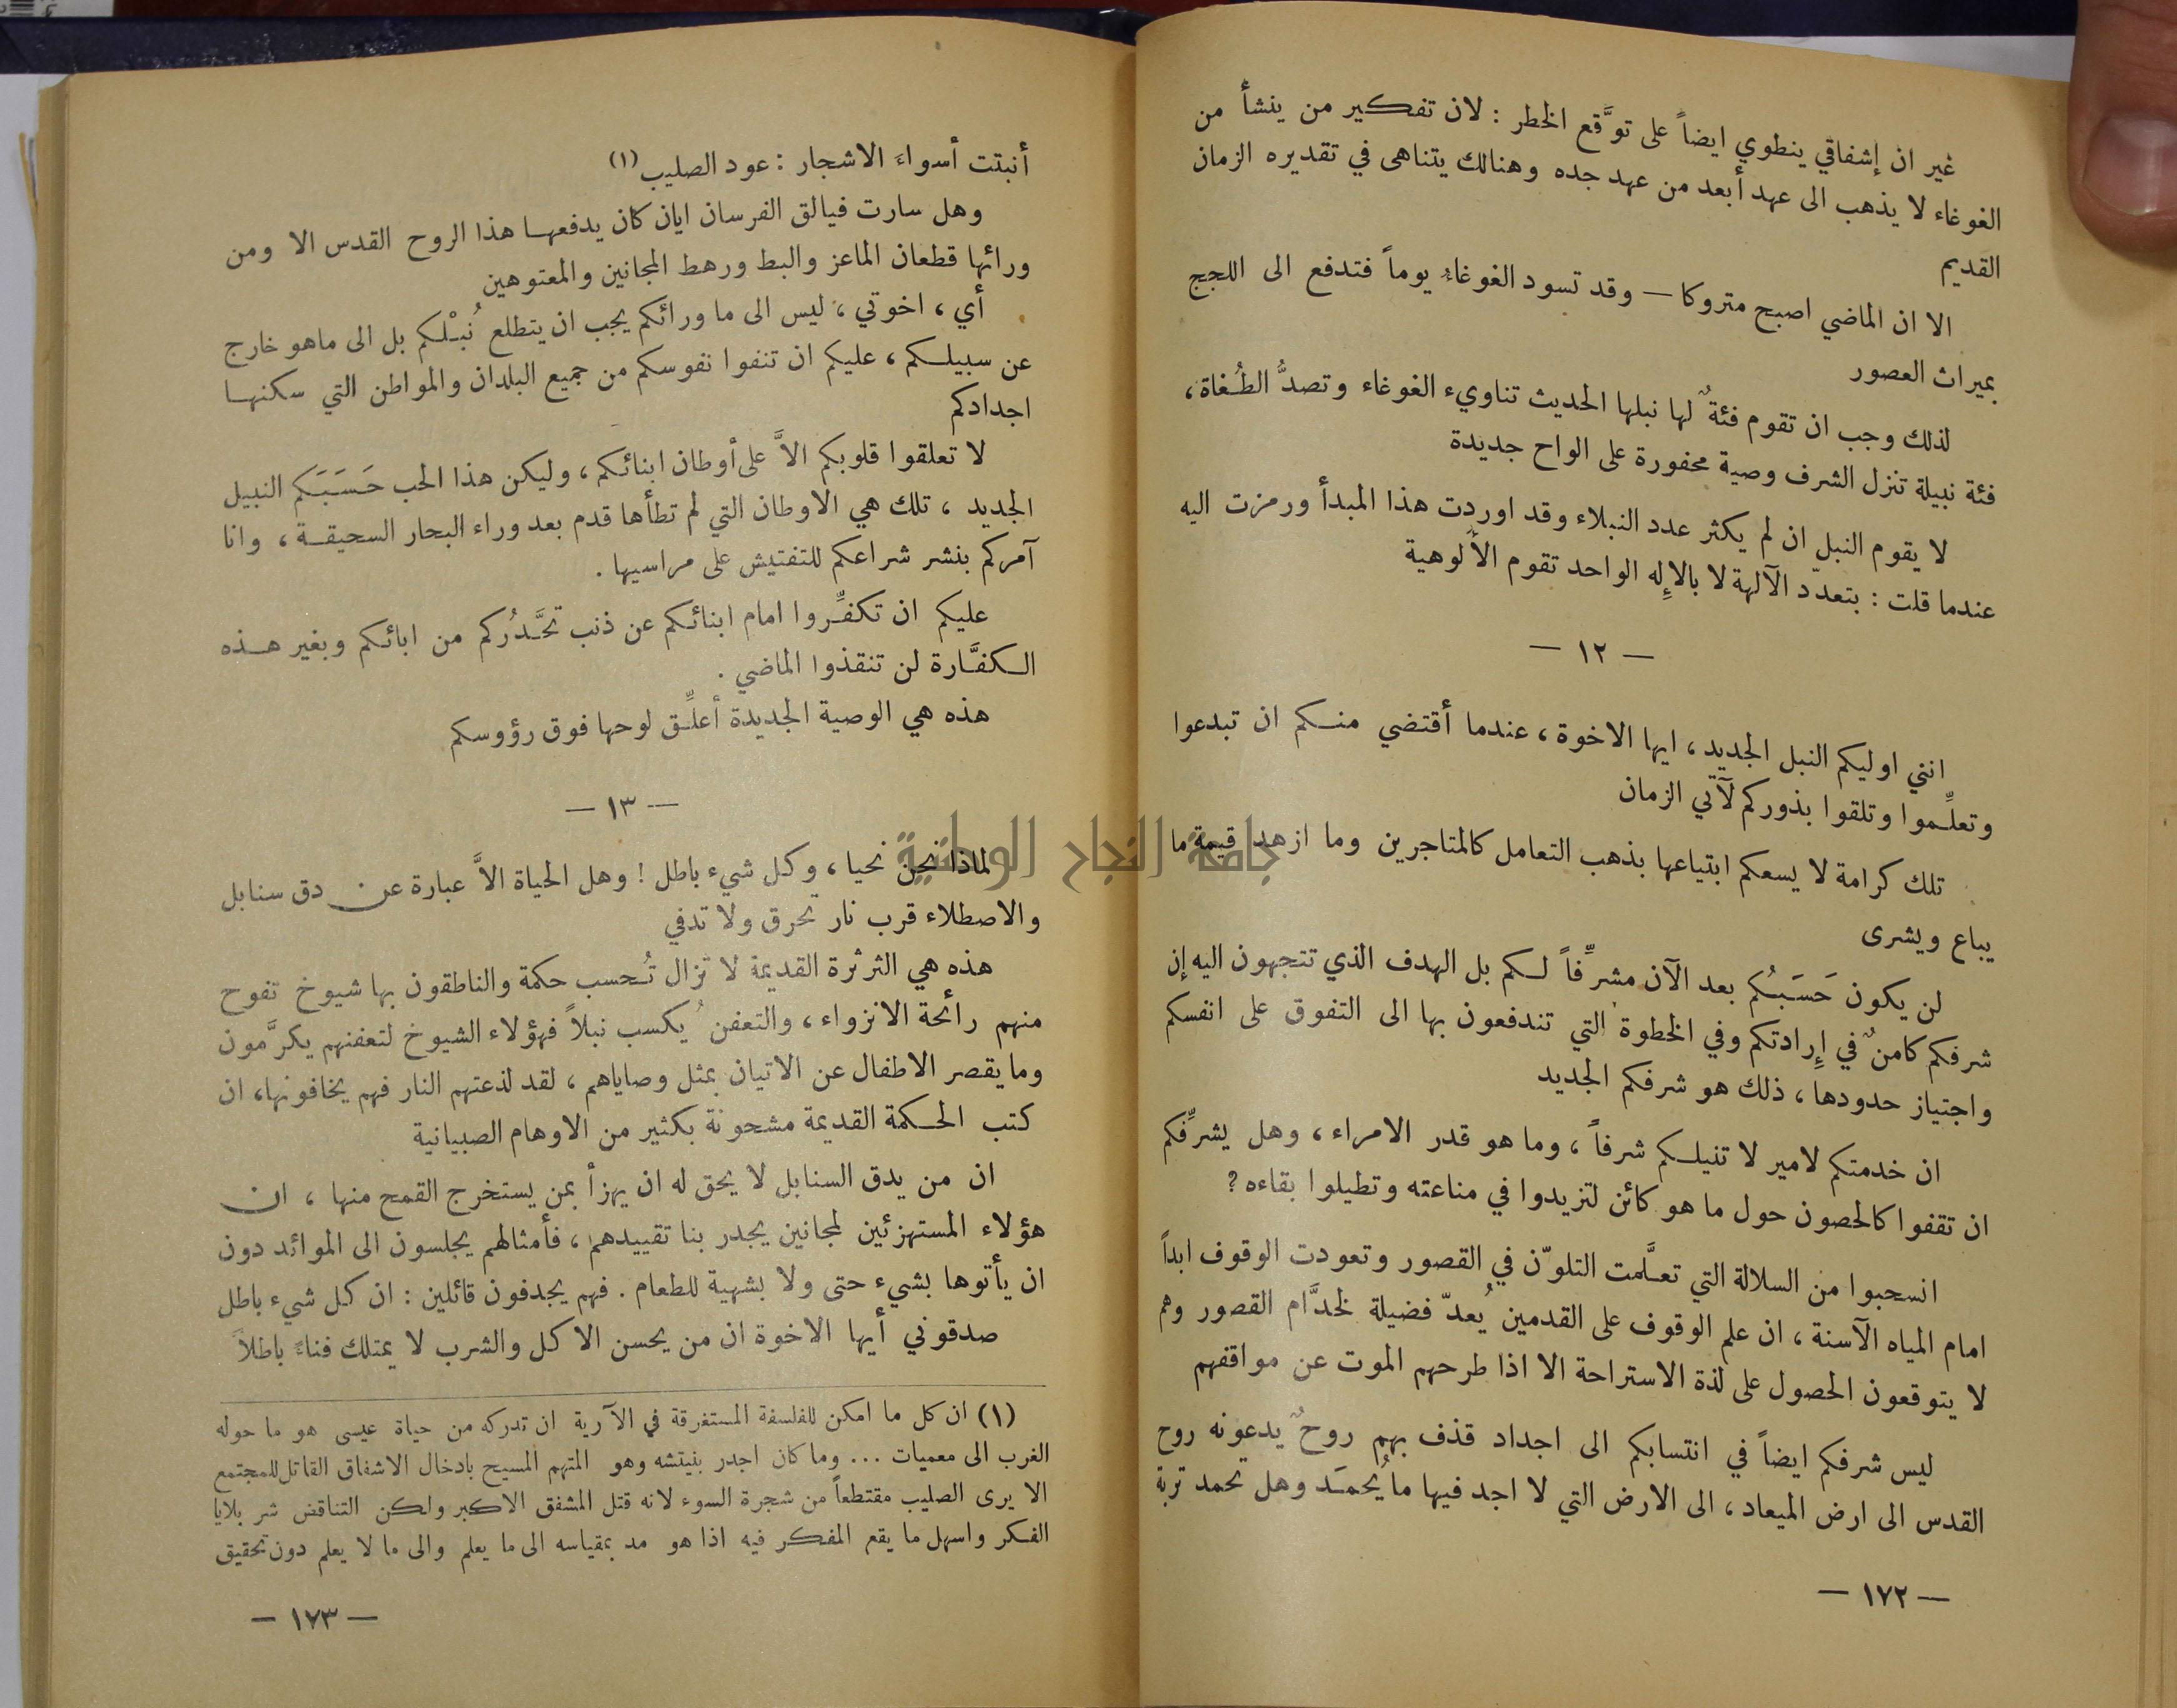 غير ان إشفاقي ينطوي ايضاً على توَّقع الخطر : لان تفكير من ينشأ من
الغوغاء لا يذهب الى عهد أبعد من عهد جده وهنالك يتناهى في تقديره الزمان
القديم
الا ان الماضي اصبح متروكا — وقد تسود الغوغاء يوماً فتدفع الى اللجج
بميراث العصور
لذلك وجب ان تقوم فئةٌ لها نبلها الحديث تناويء الغوغاء وتصدُّ الطُغاة ،
فئة نبيلة تنزل الشرف وصية محفورة على الواح جديدة
لا يقوم النبل ان لم يكثر عدد النبلاء وقد اوردت هذا المبدأ ورمزت اليه
عندما قلت : بتعدّد الآلهة لا بالإِله الواحد تقوم الألوهية
— ١٢ —
انني اوليكم النبل الجديد ، ايها الاخوة ، عندما أقتضي منكم ان تبدعوا
وتعلِّموا وتلقوا بذوركم لآتي الزمان
تلك كرامة لا يسعكم ابتياعها بذهب التعامل كالمتاجرين وما ازهد قيمة ما
يباع ويشرى
لن يكون حَسَبُكم بعد الآن مشرِّفاً لكم بل الهدف الذي تتجهون اليه إن
شرفكم كامنٌ في إِرادتكم وفي الخطوة التي تندفعون بها الى التفوق على انفسكم
واجتياز حدودها ، ذلك هو شرفكم الجديد
ان خدمتكم لامير لا تنيلكم شرفاً ، وما هو قدر الامراء ، وهل يشرِّفكم
ان تقفوا كالحصون حول ما هو كائن لتزيدوا في مناعته وتطيلوا بقاءه ؟
انسحبوا من السلالة التي تعلَّمت التلوّن في القصور وتعودت الوقوف ابداً
امام المياه الآسنة ، ان علم الوقوف على القدمين يُعدّ فضيلة لخدَّام القصور وهم
لا يتوقعون الحصول على لذة الاستراحة الا اذا طرحهم الموت عن مواقفهم
ليس شرفكم ايضاً في انتسابكم الى اجداد قذف بهم روحٌ يدعونه روح
القدس الى ارض الميعاد ، الى الارض التي لا اجد فيها ما يُحمَد وهل تحمد تربة
— ١٧٢ —
أنبتت أسواءَ الاشجار : عود الصليب (١)
وهل سارت فيالق الفرسان ايان كان يدفعها هذا الروح القدس الا ومن
ورائها قطعان الماعز والبط ورهط المجانين والمعتوهين
أي ، اخوتي ، ليس الى ما ورائكم يجب ان يتطلع نُبْلكم بل الى ماهو خارج
عن سبيلكم ، عليكم ان تنفوا نفوسكم من جميع البلدان والمواطن التي سكنها
اجدادكم
لا تعلقوا قلوبكم الاَّ على أوطان ابنائكم ، وليكن هذا الحب حَسَبَكم النبيل
الجديد ، تلك هي الاوطان التي لم تطأها قدم بعد وراء البحار السحيقة ، وانا
آمركم بنشر شراعكم للتفتيش على مراسيها .
عليكم ان تكفِّروا امام ابنائكم عن ذنب تحَّدُركم من ابائكم وبغير هذه
الكفَّارة لن تنقذوا الماضي .
هذه هي الوصية الجديدة أعلِّق لوحها فوق رؤوسكم
— ١٣ —
لماذا نحن نحيا ، وكل شيء باطل ! وهل الحياة الاَّ عبارة عن دق سنابل
والاصطلاء قرب نار تحرق ولا تدفي
هذه هي الثرثرة القديمة لا تزال تُحسب حكمة والناطقون بها شيوخ تفوح
منهم رائحة الانزواء ، والتعفن يُكسب نبلاً فهؤلاء الشيوخ لتعفنهم يكرَّمون
وما يقصر الاطفال عن الاتيان بمثل وصاياهم ، لقد لذعتهم النار فهم يخافونها، ان
كتب الحكمة القديمة مشحونة بكثير من الاوهام الصبيانية
ان من يدق السنابل لا يحق له ان يهزأ بمن يستخرج القمح منها ، ان
هؤلاء المستهزئين لمجانين يجدر بنا تقييدهم ، فأمثالهم يجلسون الى الموائد دون
ان يأتوها بشيء حتى ولا بشهية للطعام . فهم يجدفون قائلين : ان كل شيء باطل
صدقوني أيها الاخوة ان من يحسن الاكل والشرب لا يمتلك فناءً باطلاً
(١) ان كل ما امكن للفلسفة المستغرقة في الآرية ان تدركه من حياة عيسى هو ما حوله
الغرب الى معميات ... وما كان اجدر بنيتشه وهو المتهم المسيح بادخال الاشفاق القاتل للمجتمع
الا يرى الصليب مقتطعاً من شجرة السوء لانه قتل المشفق الاكبر ولكن التناقض شر بلايا
الفكر واسهل ما يقع المفكر فيه اذا هو مد بمقياسه الى ما يعلم والى ما لا يعلم دون تحقيق
— ١٧٣ —
جامعة النجاح الوطنية